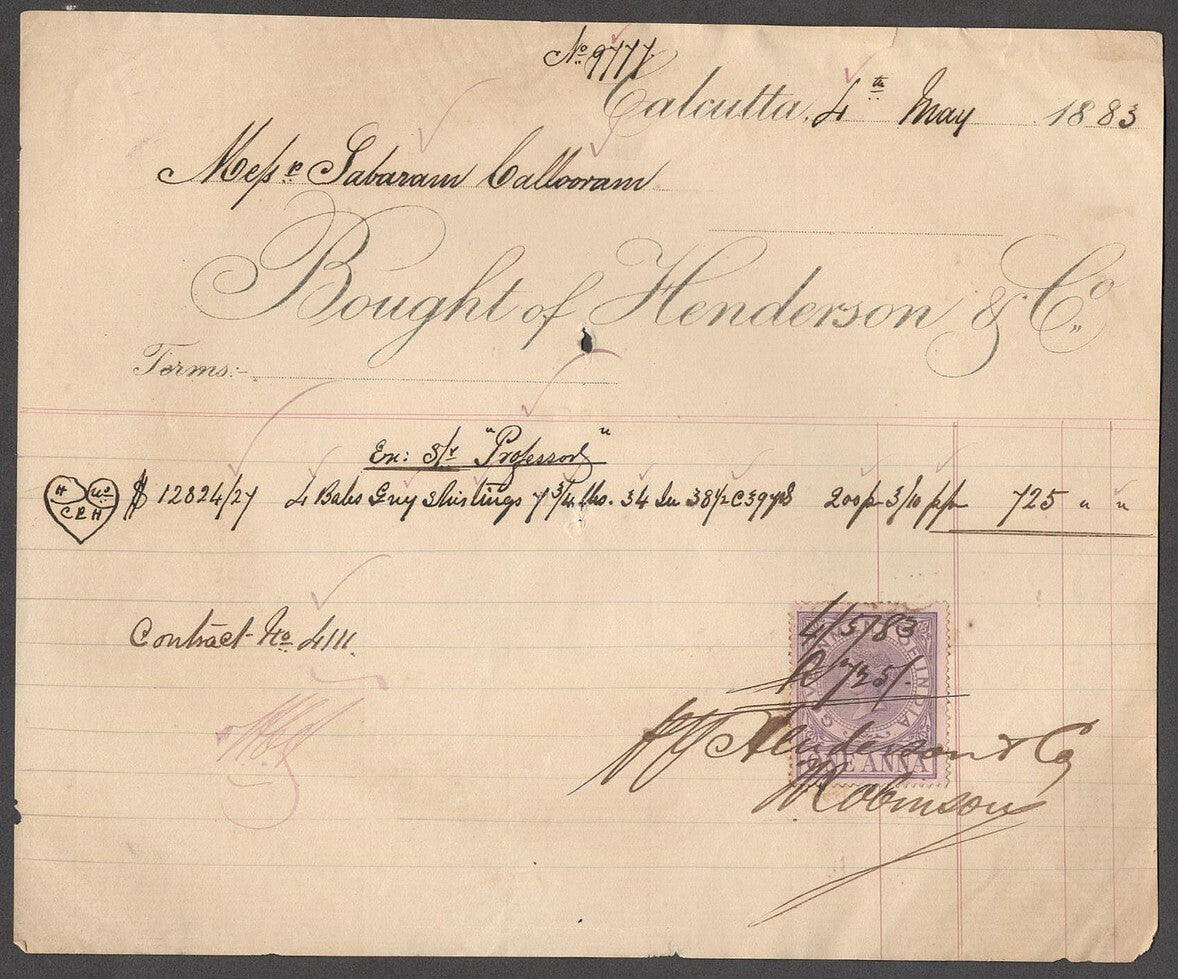 No 9777.
Calcutta, 4th May 1883
Messrs Sabaram Callooram
Bought of Henderson & Co.
Terms:-
Ex: S/r "Professor"
H & Co
C R H
12824/27 4 Bales Grey Shirtings 7 3/4 lbs. 34 In 38 1/2 @ 39 yds 200 p 3/10 p/p 725 " "
Contract No 4111.
GOVERNMENT OF INDIA
4/5/83
R 725/-
Henderson & Co
ONE ANNA
Robinson